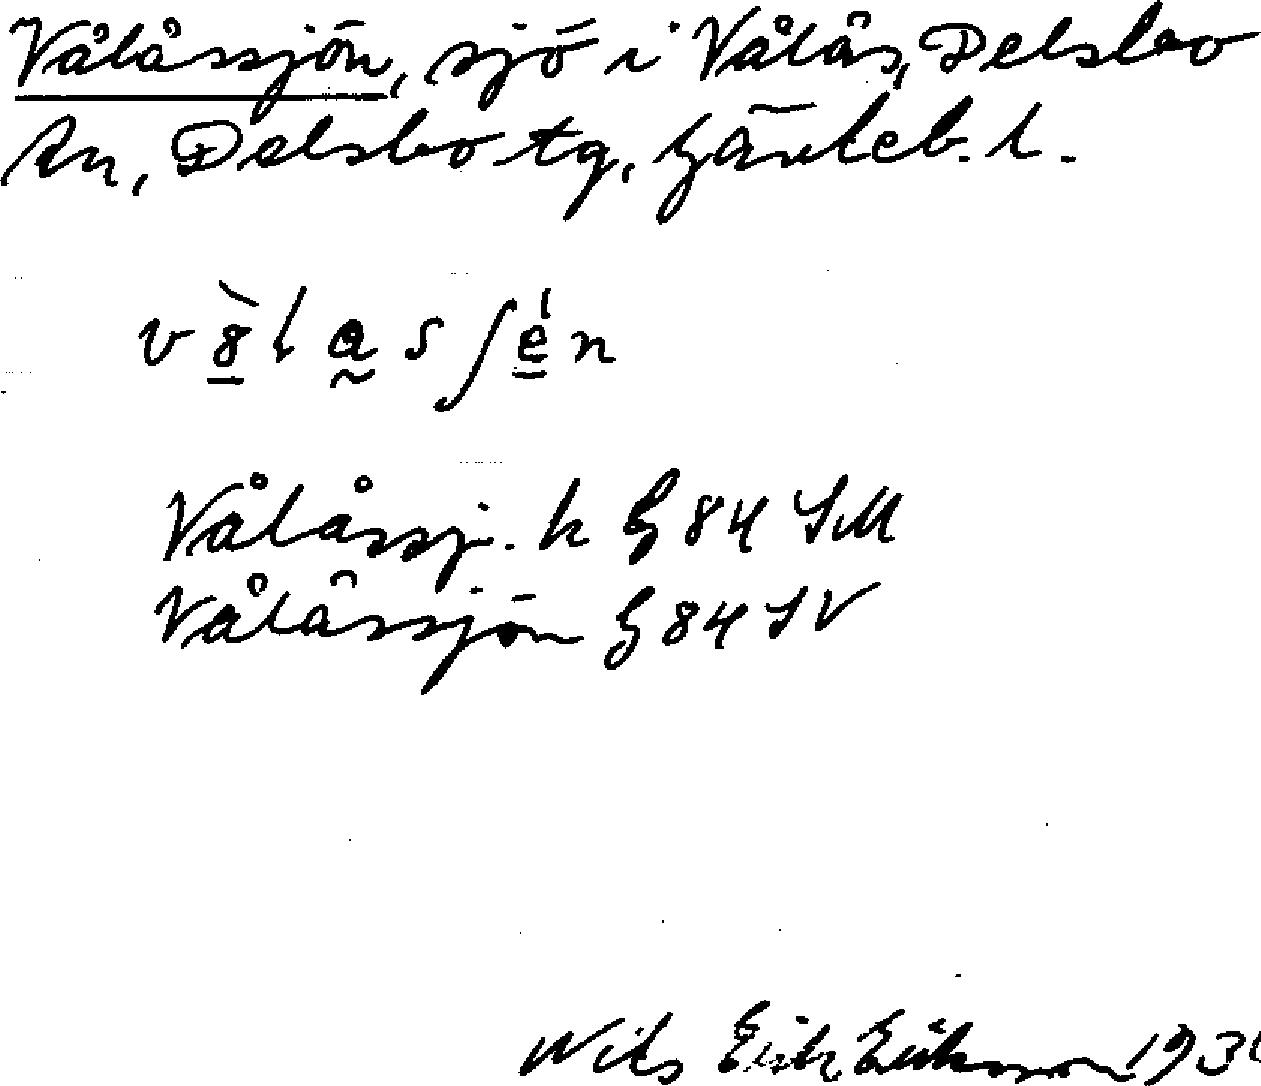 Vålåssjön, sjö i Vålås, Delsbo
sn, Delsbo tg, Gävleb. l.
Vålåssj. k G 84 SM
Vålåssjön G 84 SV
Nils Erik Eriksson